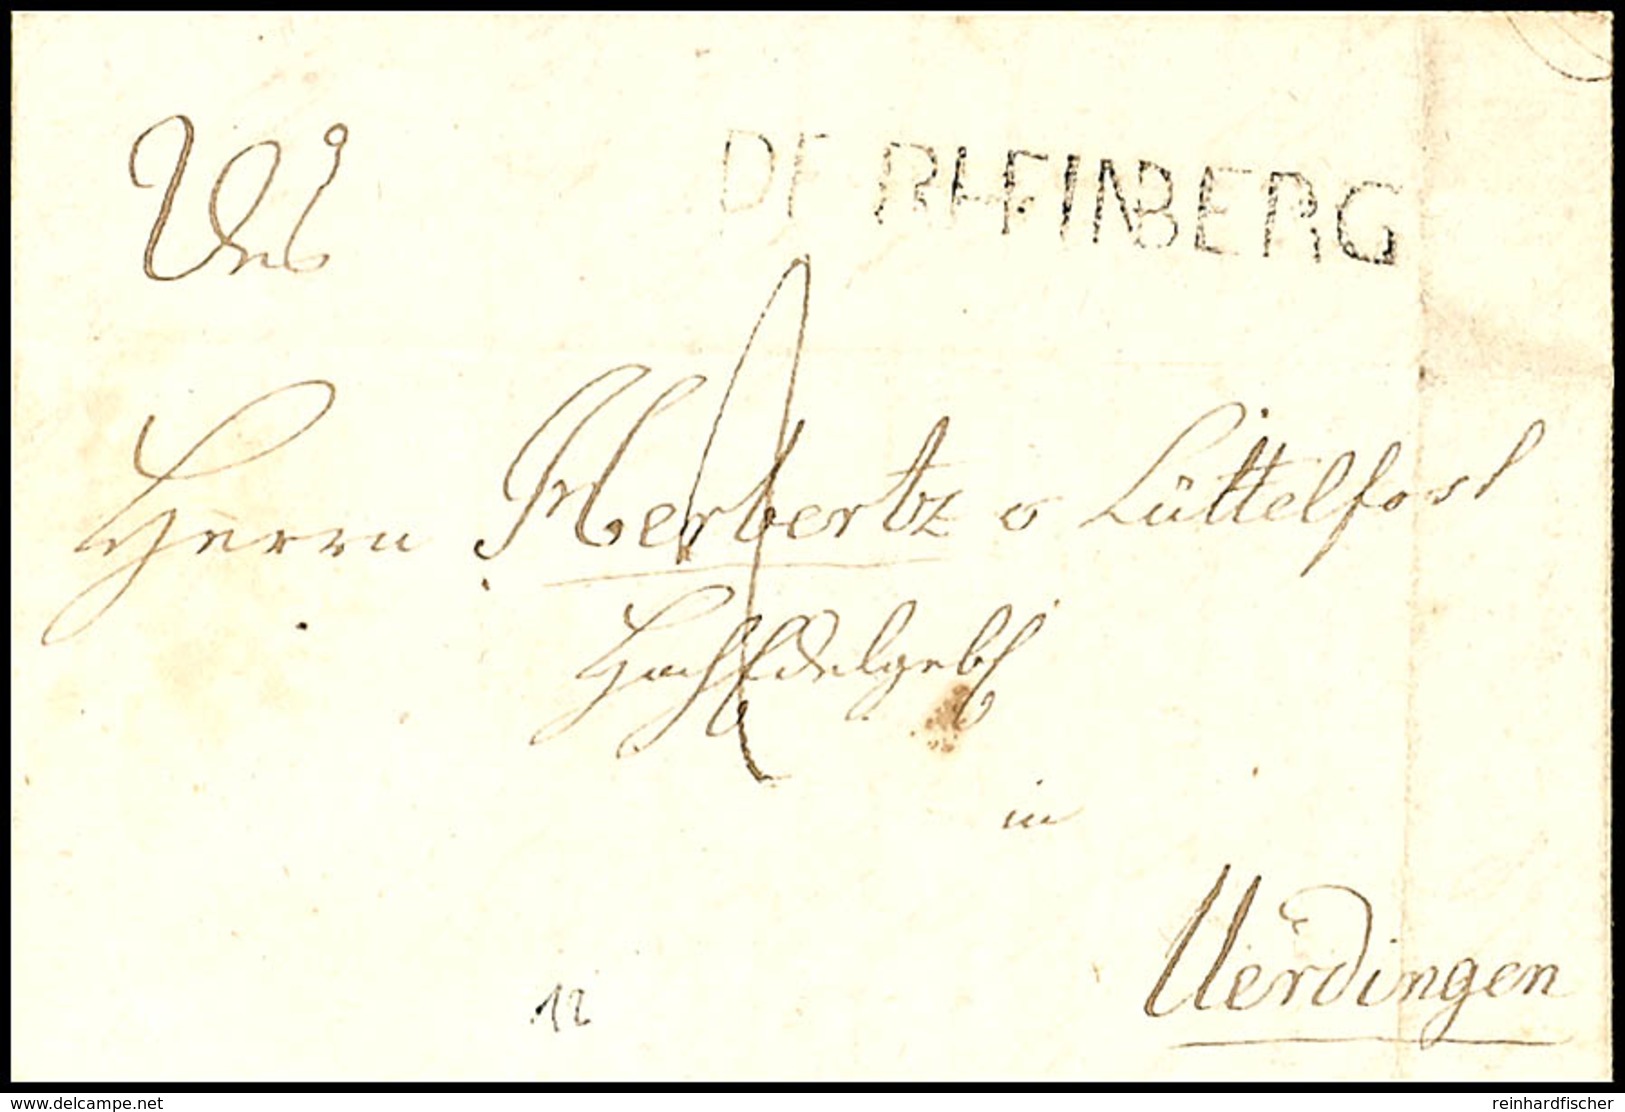 DE RHEINBERG
Herrn Herbertz & Lüttelforst
HochEdelgeb
in
Uerdingen
12
www.delcampe.net
reinhardfischer